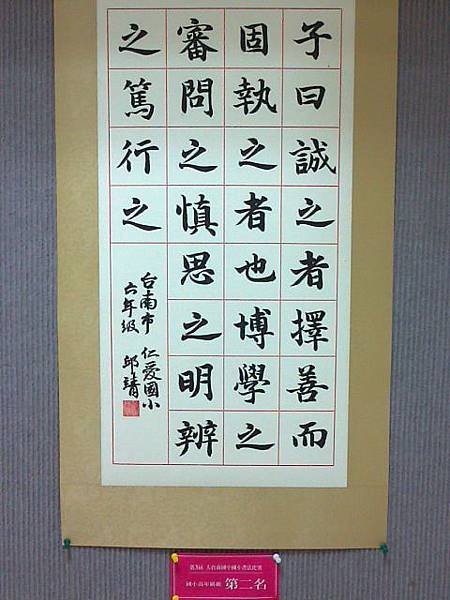 子曰誠之者擇善而
固執之者也博學之
審問之慎思之明辨
之篤行之
台南市 仁愛國小
六年級 邱靖
大台南國中國小書法比賽
國小高年級組 第二名